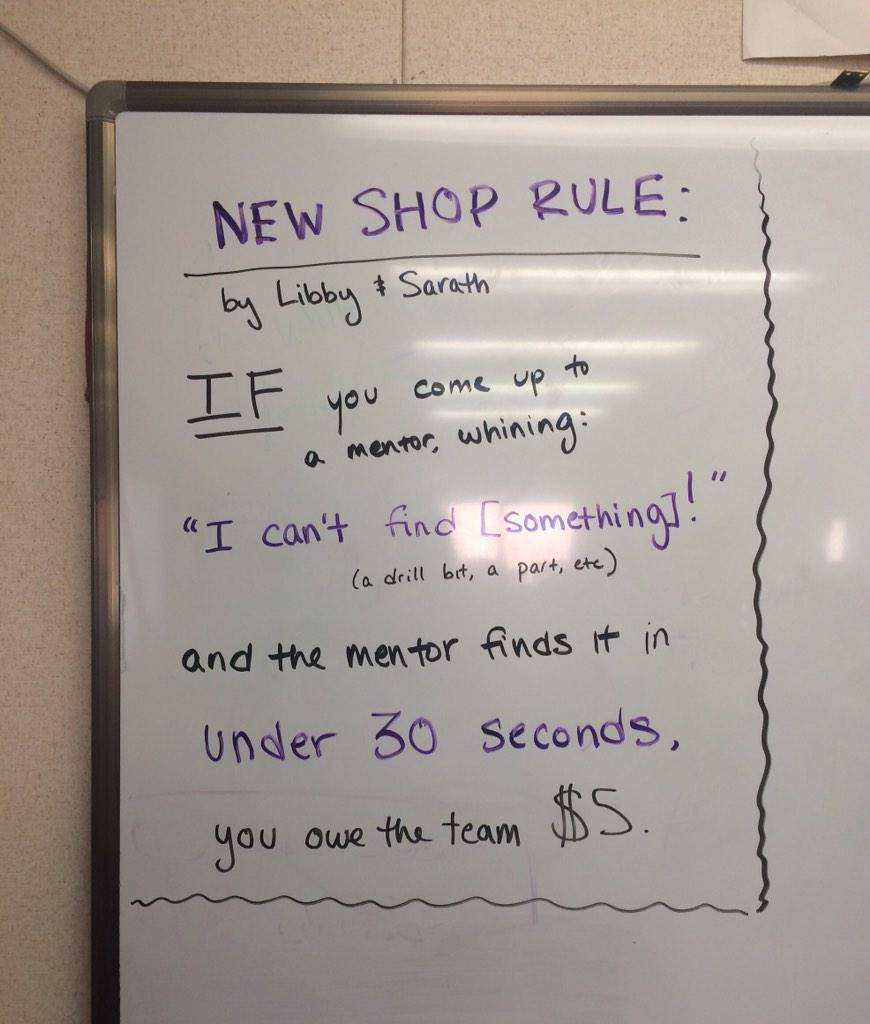 NEW SHOP RULE:
by Libby & Sarath
IF you come up to
a mentor, whining:
"I can't find [something]!"
(a drill bit, a part, etc)
and the mentor finds it in
under 30 seconds,
you owe the team $5.